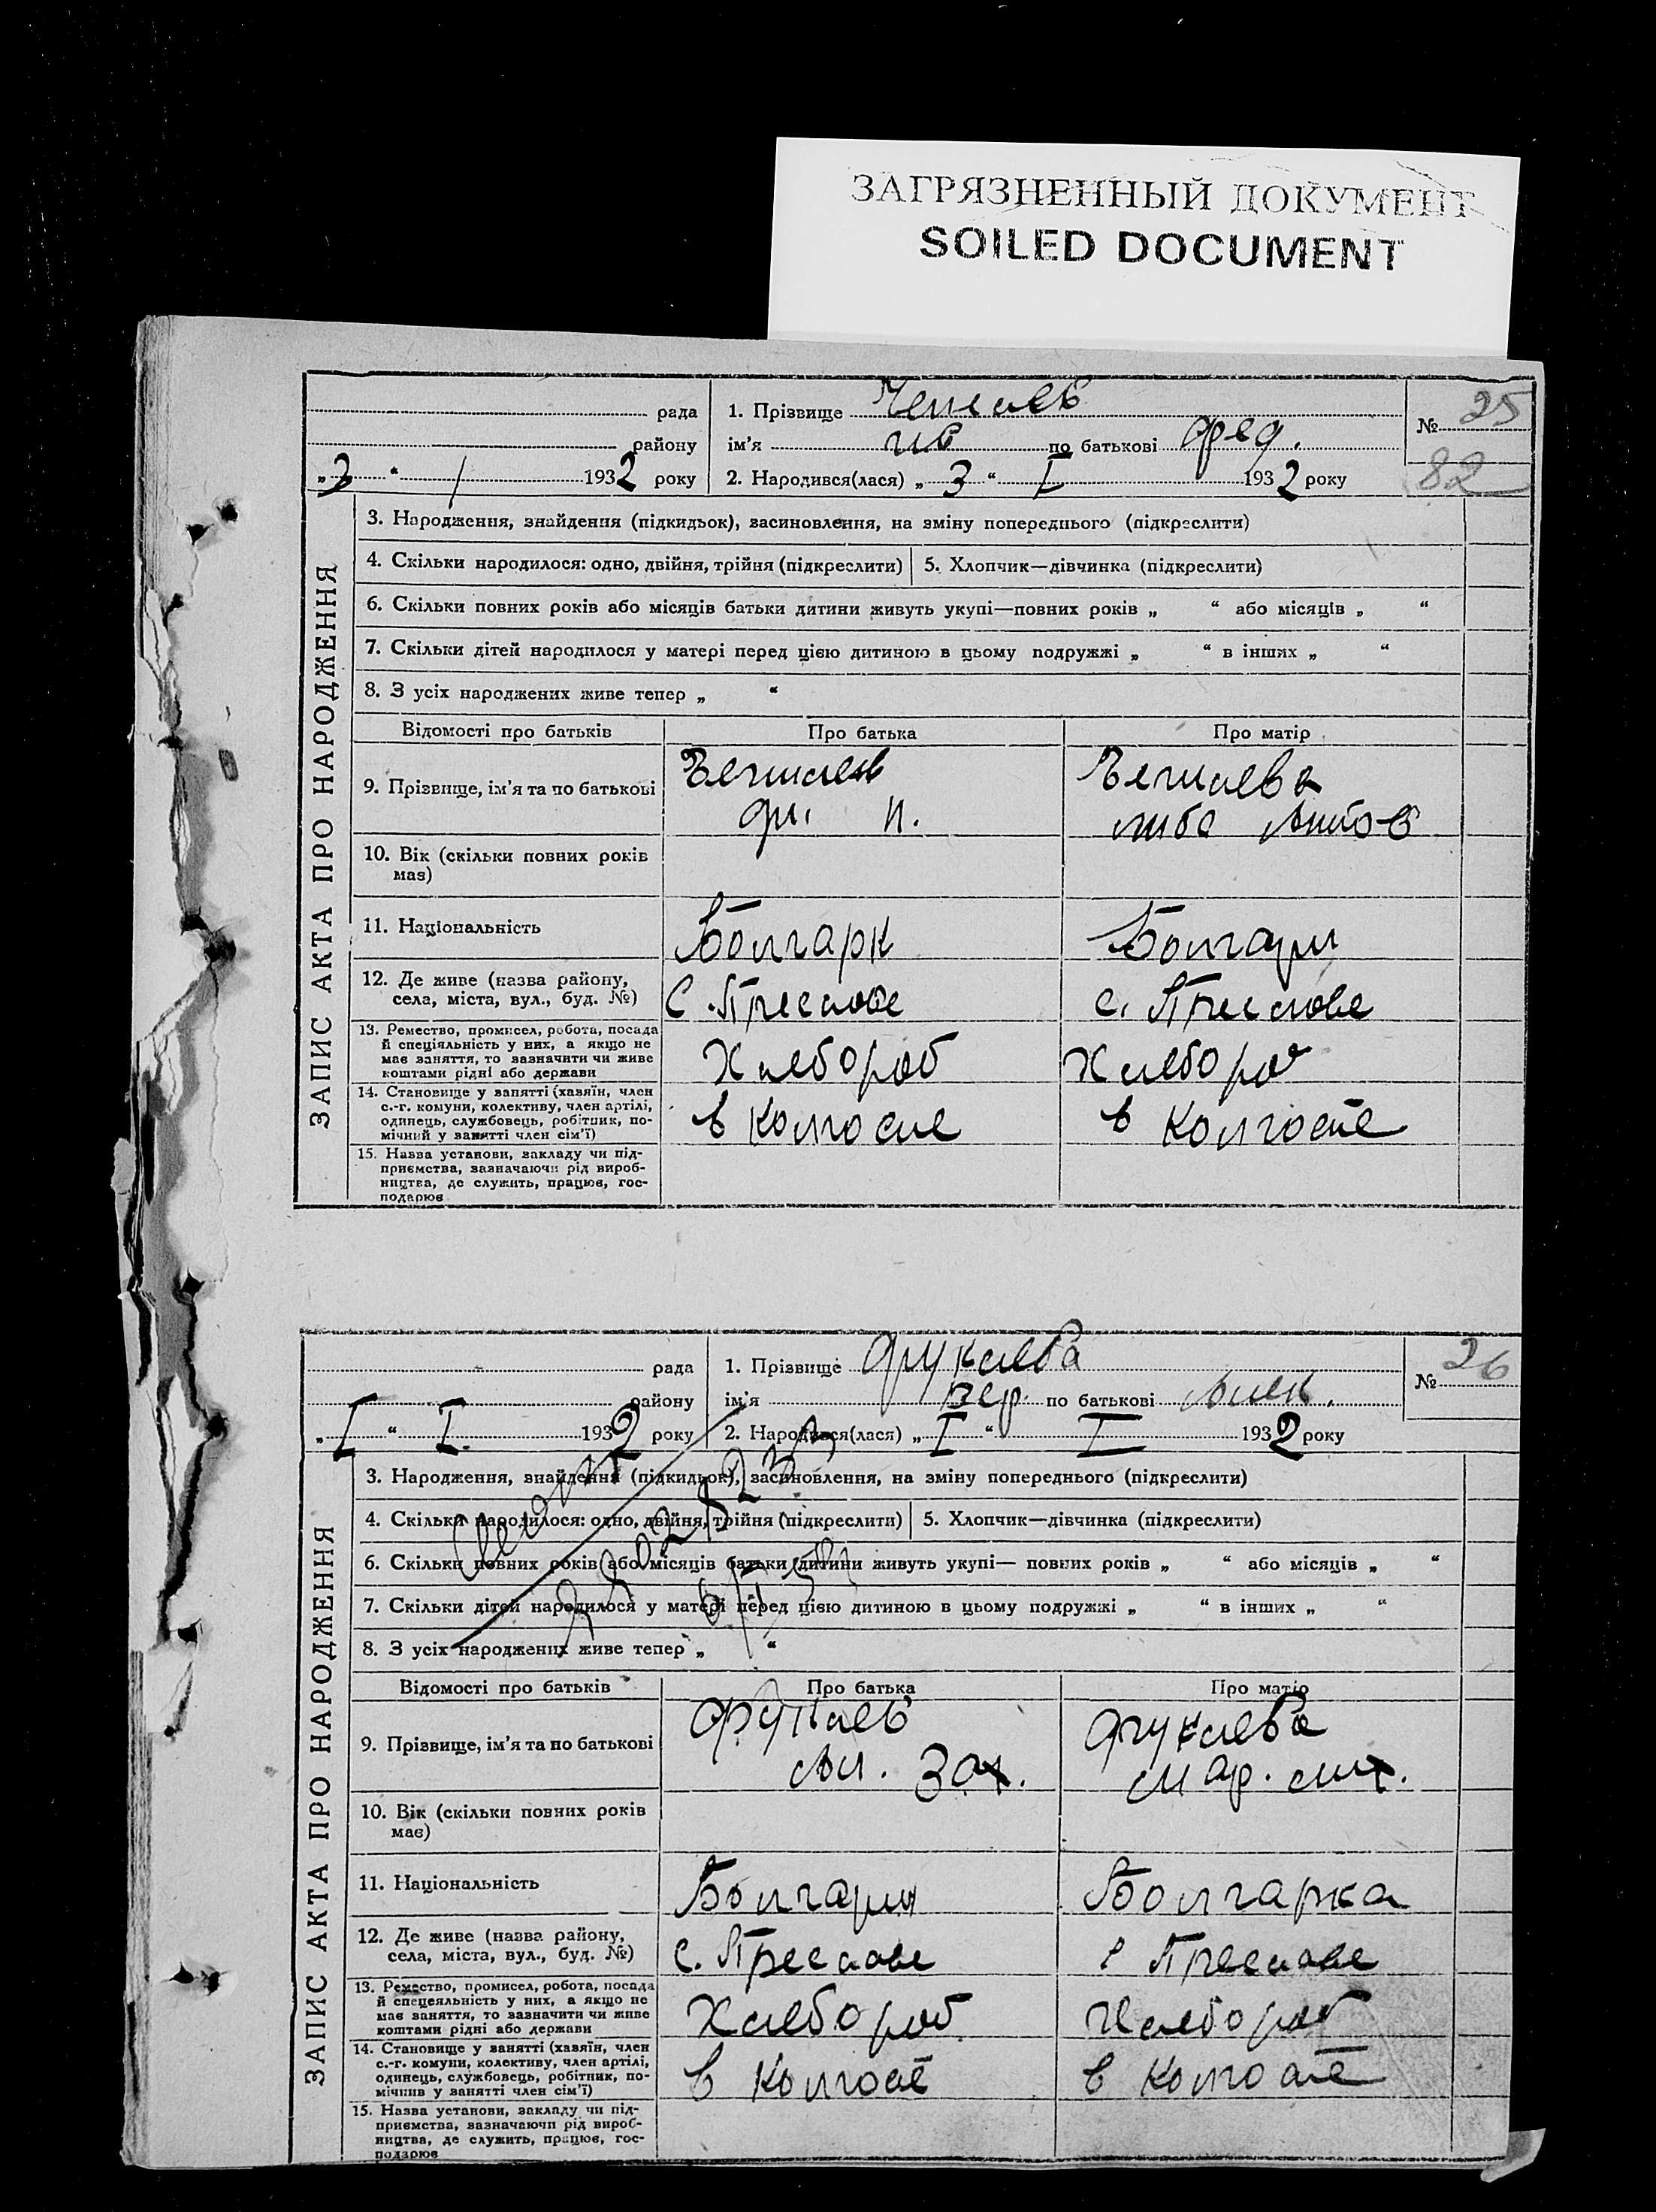 ЗАГРЯЗНЕННЫЙ ДОКУМЕНТ
SOILED DOCUMENT
ЗАПИС АКТА ПРО НАРОДЖЕННЯ
рада
району
„3“ / 1932 року
1. Прізвище
ім'я по батькові
2. Народився(лася) „3“ I 1932 року
№ 25
82
3. Народження, знайдення (підкидьок), засиновлення, на зміну попереднього (підкреслити)
4. Скільки народилося: одно, двійня, трійня (підкреслити) 5. Хлопчик—дівчинка (підкреслити)
6. Скільки повних років або місяців батьки дитини живуть укупі—повних років „ “ або місяців „ “
7. Скільки дітей народилося у матері перед цією дитиною в цьому подружжі „ “ в інших „ “
8. З усіх народжених живе тепер „ “
Відомості про батьків Про батька Про матір
9. Прізвище, ім'я та по батькові
10. Вік (скільки повних років
має)
11. Національність Болгарк Болгари
12. Де живе (назва району,
села, міста, вул., буд. №) С. Преслове с. Преслове
13. Ремество, промисел, робота, посада
й спеціяльність у них, а якщо не
має заняття, то зазначити чи живе
коштами рідні або держави
Хлебороб Хлебороб
14. Становище у занятті (хазяїн, член
с.-г. комуни, колективу, член артілі,
одинець, службовець, робітник, по-
мічний у занятті член сім'ї)
в колгоспе в колгоспе
15. Назва установи, закладу чи під-
приємства, зазначаючи рід вироб-
ництва, де служить, працює, гос-
подарює
ЗАПИС АКТА ПРО НАРОДЖЕННЯ
рада
району
„I“ I 1932 року
1. Прізвище Друкаева
ім'я по батькові
2. Народився(лася) „I“ I 1932 року
№ 26
3. Народження, знайдення (підкидьок), засиновлення, на зміну попереднього (підкреслити)
4. Скільки народилося: одно, двійня, трійня (підкреслити) 5. Хлопчик—дівчинка (підкреслити)
6. Скільки повних років або місяців батьки дитини живуть укупі— повних років „ “ або місяців „ “
7. Скільки дітей народилося у матері перед цією дитиною в цьому подружжі „ “ в інших „ “
8. З усіх народжених живе тепер „ “
Відомості про батьків Про батька Про матір
9. Прізвище, ім'я та по батькові
10. Вік (скільки повних років
має)
11. Національність Болгарин Болгарка
12. Де живе (назва району,
села, міста, вул., буд. №) с. Преслове с Преслове
13. Ремество, промисел, робота, посада
й спецеяльність у них, а якщо не
має заняття, то зазначити чи живе
коштами рідні або держави
Хлебороб Хлебороб
14. Становище у занятті (хазяїн, член
с.-г. комуни, колективу, член артілі,
одинець, службовець, робітник, по-
мічнив у занятті член сім'ї)
в колгоспе в колгоспе
15. Назва установи, закладу чи під-
приємства, зазначаючи рід вироб-
ництва, де служить, працює, гос-
подарює